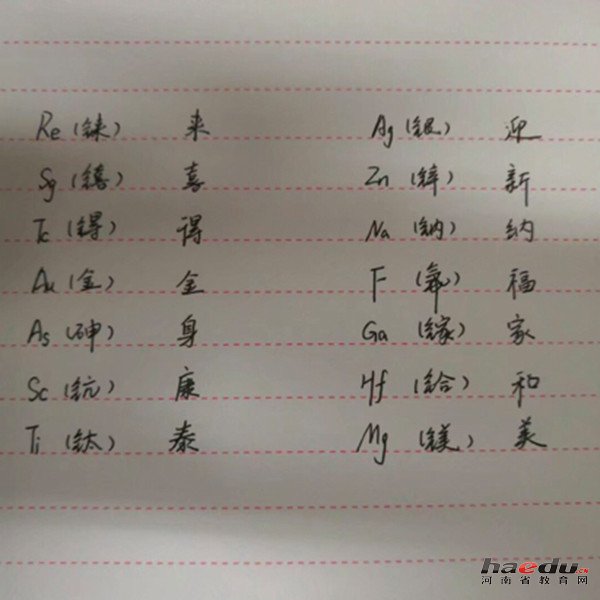 Re (铼) 来
Sg (𬭳) 喜
Tc (锝) 得
Au (金) 金
As (砷) 身
Sc (钪) 康
Ti (钛) 泰
Ag (银) 迎
Zn (锌) 新
Na (钠) 纳
F (氟) 福
Ga (镓) 家
Hf (铪) 和
Mg (镁) 美
haedu.cn
河南省教育网